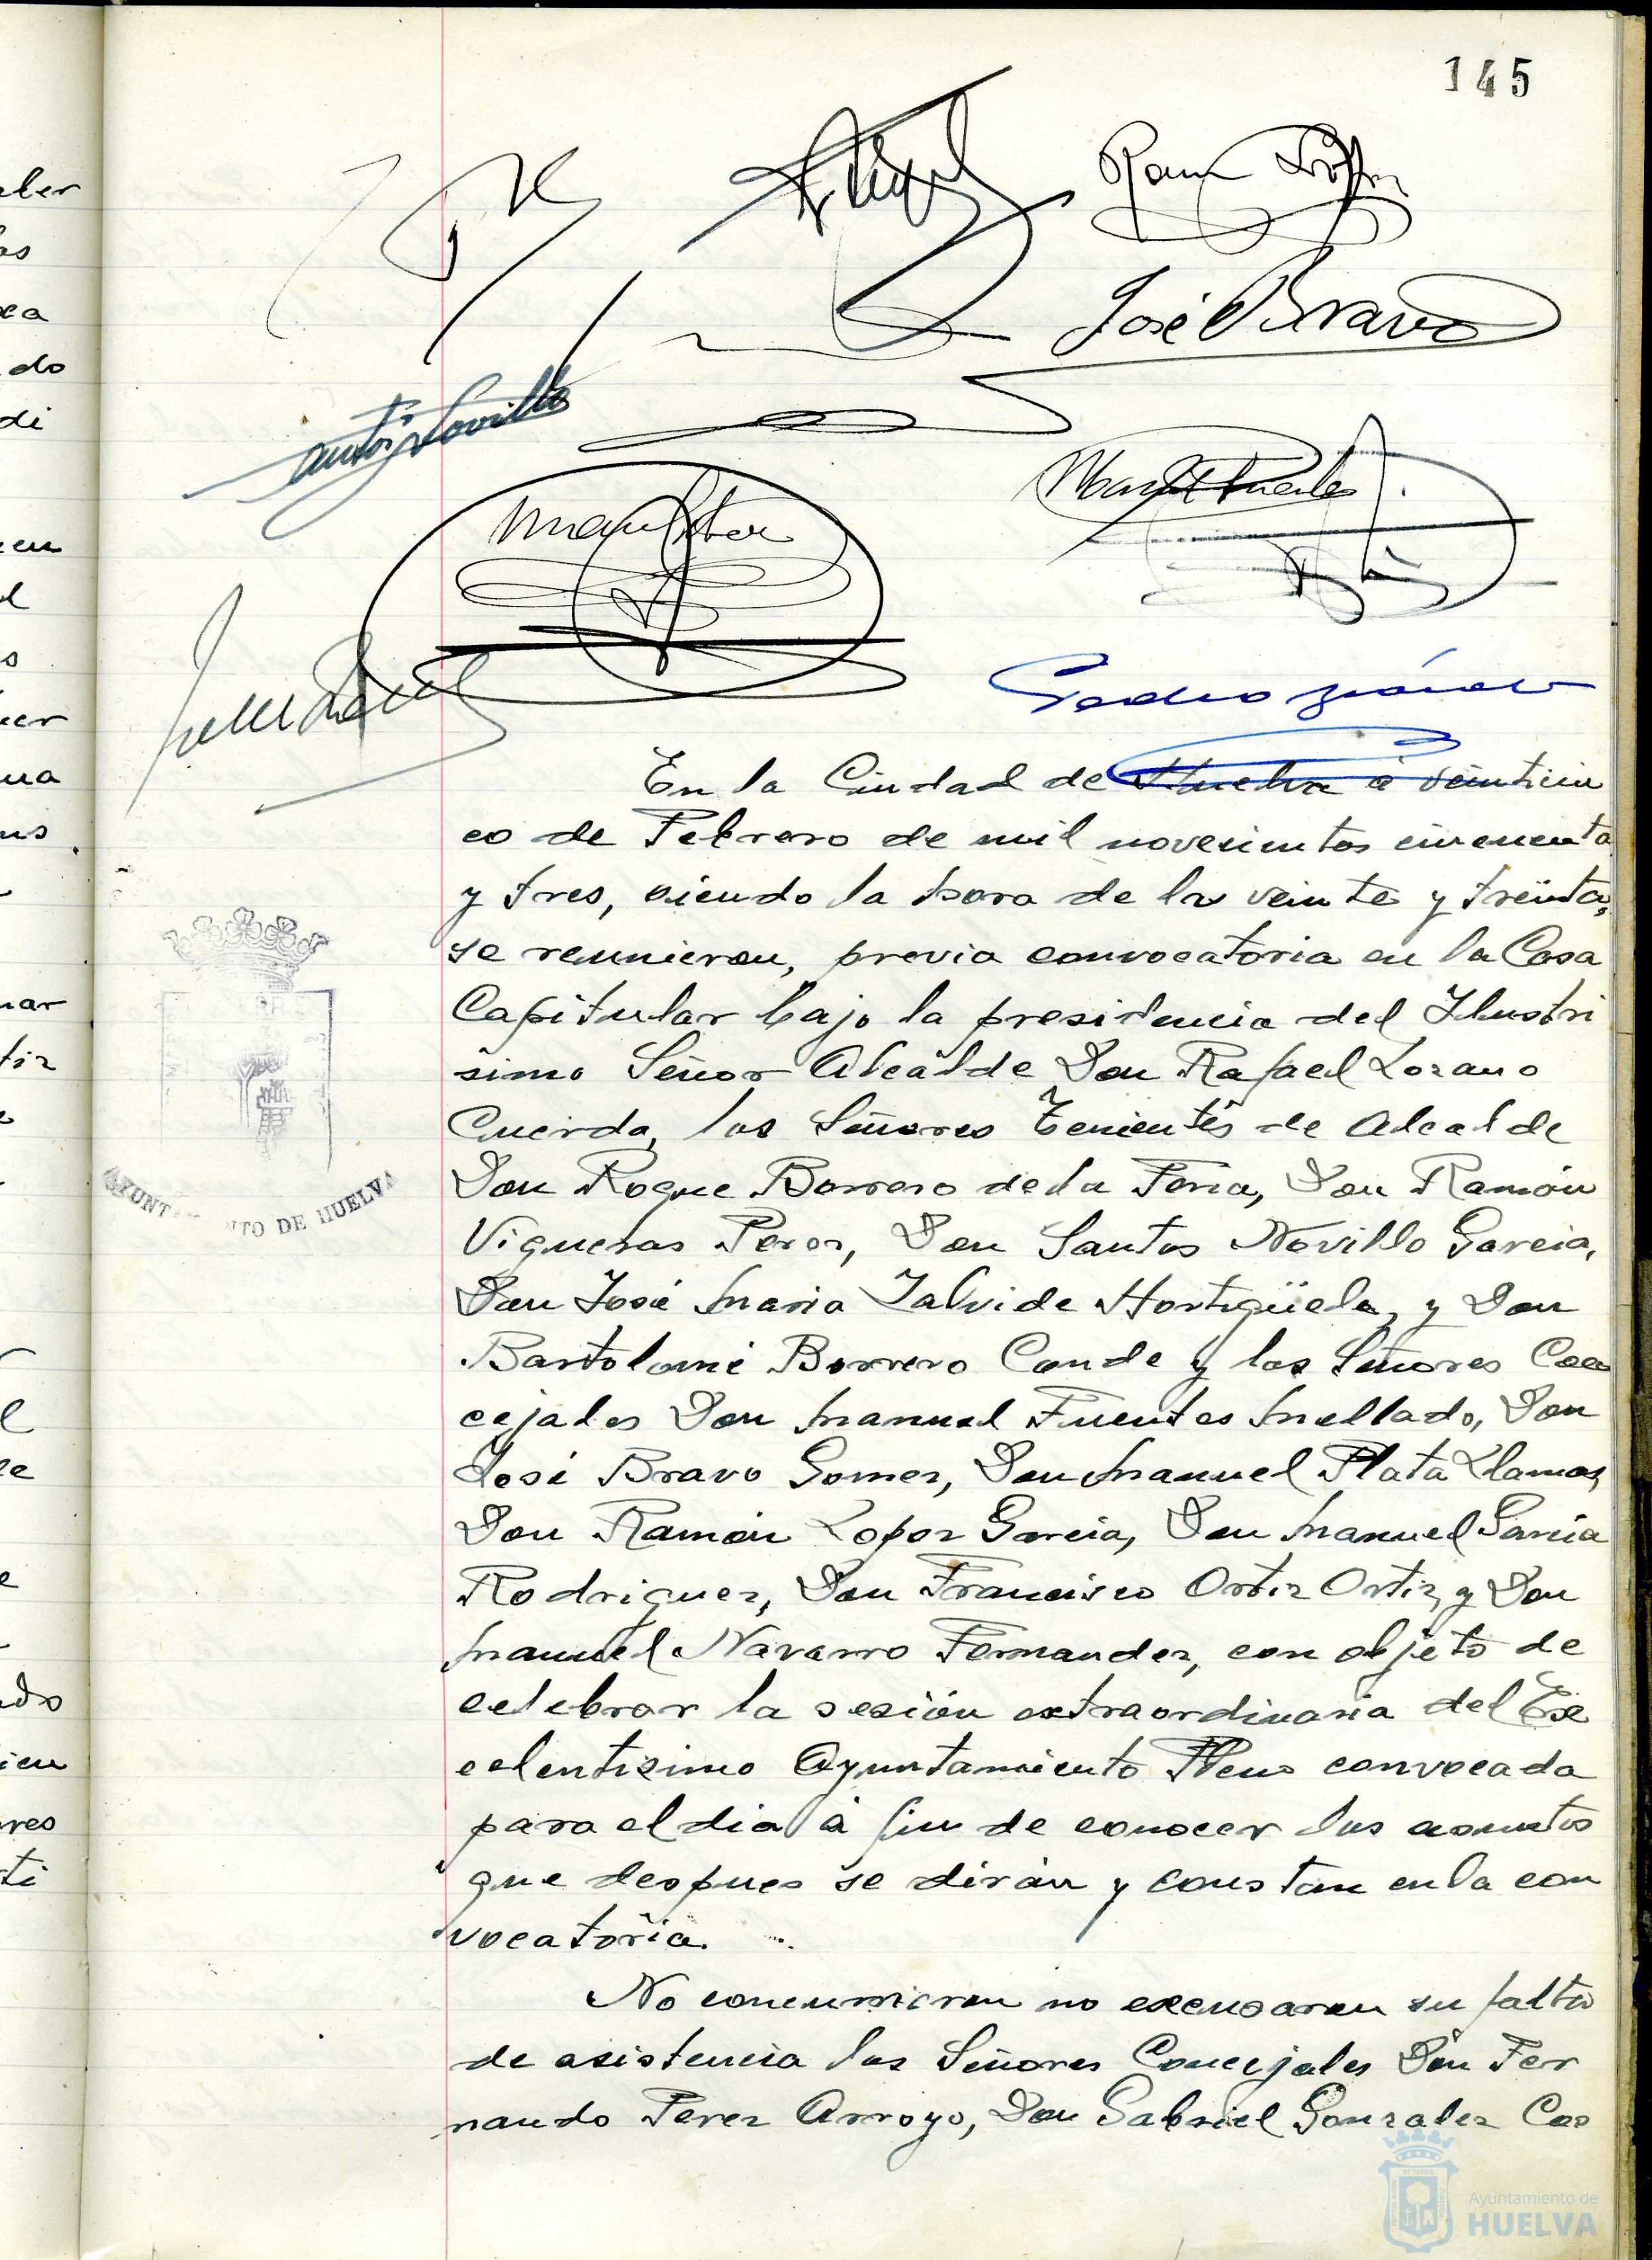 145
José Bravo
En la Ciudad de Huelva a veinticin
co de Febrero de mil novecientos cincuenta
y tres, siendo la hora de las veinte y treinta,
se reunieron, previa convocatoria en la Casa
Capitular bajo la presidencia del Ilustri
simo Señor Alcalde Don Rafael Lozano
Cuerda, los Señores Tenientes de Alcalde
Don Roque Borrero de la Feria, Don Ramón
Vigueras Perez, Don Santos Novillo Garcia,
Don José Maria Zalvide Hortigüela, y Don
Bartolomé Borrero Conde y los Señores Con
cejales Don Manuel Fuentes Mellado, Don
José Bravo Gomez, Don Manuel Plata Llamas,
Don Ramón Lopez Garcia, Don Manuel Garcia
Rodriguez, Don Francisco Ortiz Ortiz, y Don
Manuel Navarro Fernandez, con objeto de
celebrar la sesión extraordinaria del Ex
celentisimo Ayuntamiento Pleno convocada
para el dia a fin de conocer los asuntos
que despues se dirán y constan en la con
vocatoria.
No concurrieron no excusaron su falta
de asistencia los Señores Concejales Don Fer
nando Perez Arroyo, Don Gabriel Gonzalez Cas
AYUNTAMIENTO DE HUELVA
Ayuntamiento de
HUELVA